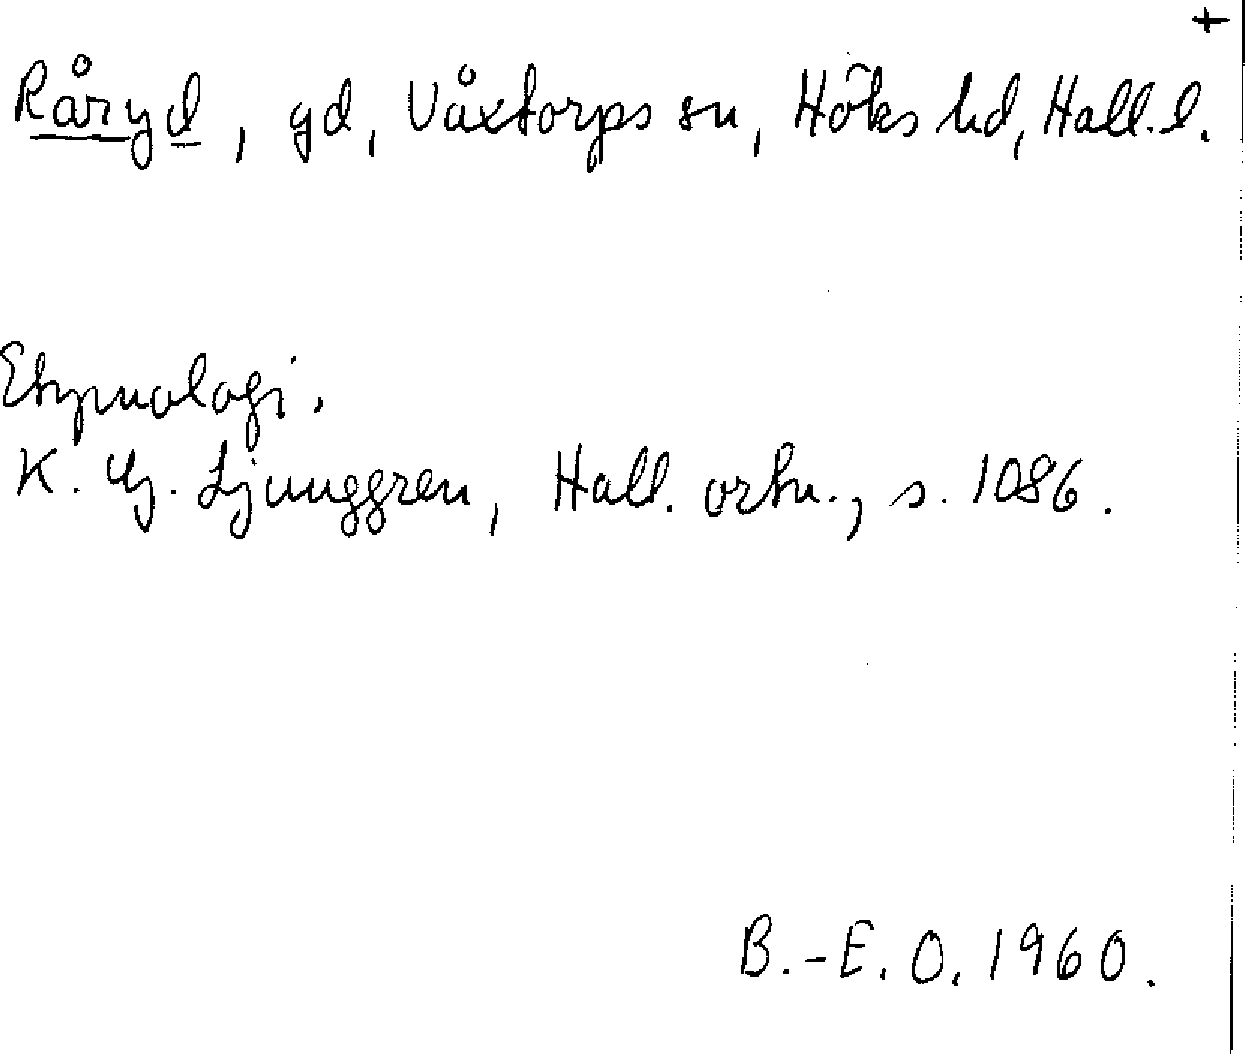 +
Råryd, gd, Våxtorps sn, Höks hd, Hall. l.
Etymologi.
K. G. Ljunggren, Hall. ortn., s. 1086.
B.-E. O. 1960.